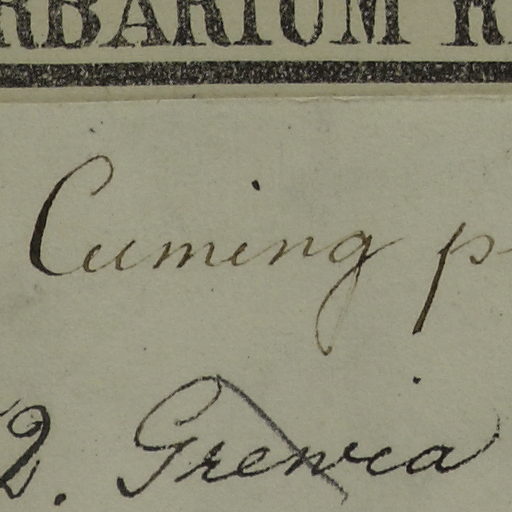 RBARIUM R
Cuming p
2. Grewia